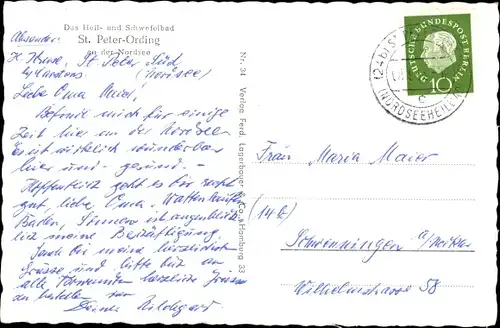 Das Heil- und Schwefelbad
St. Peter-Ording
an der Nordsee
Absender:
St. Peter Süd
(Nordsee)
Liebe Oma Maier!
Befinde mich für einige
Zeit hier an der Nordsee.
Es ist wirklich wunderbar
hier und gesund. -
Hoffentlich geht es Dir recht
gut, liebe Oma. Wattlaufen,
Baden, Sonnen ist augenblick-
lich meine Beschäftigung.
Grüsse und bitte Dich an
alle Verwandten herzliche Grüsse
Deine Hildegard
Nr. 34 Verlag Ferd. Lagerbauer & Co., Hamburg 33
DEUTSCHE BUNDESPOST BERLIN
10
(24b) ST
c
(NORDSEEHEIL
Frau Maria Maier
(14b)
Schwenningen a/Neckar
Wilhelmstrasse 58